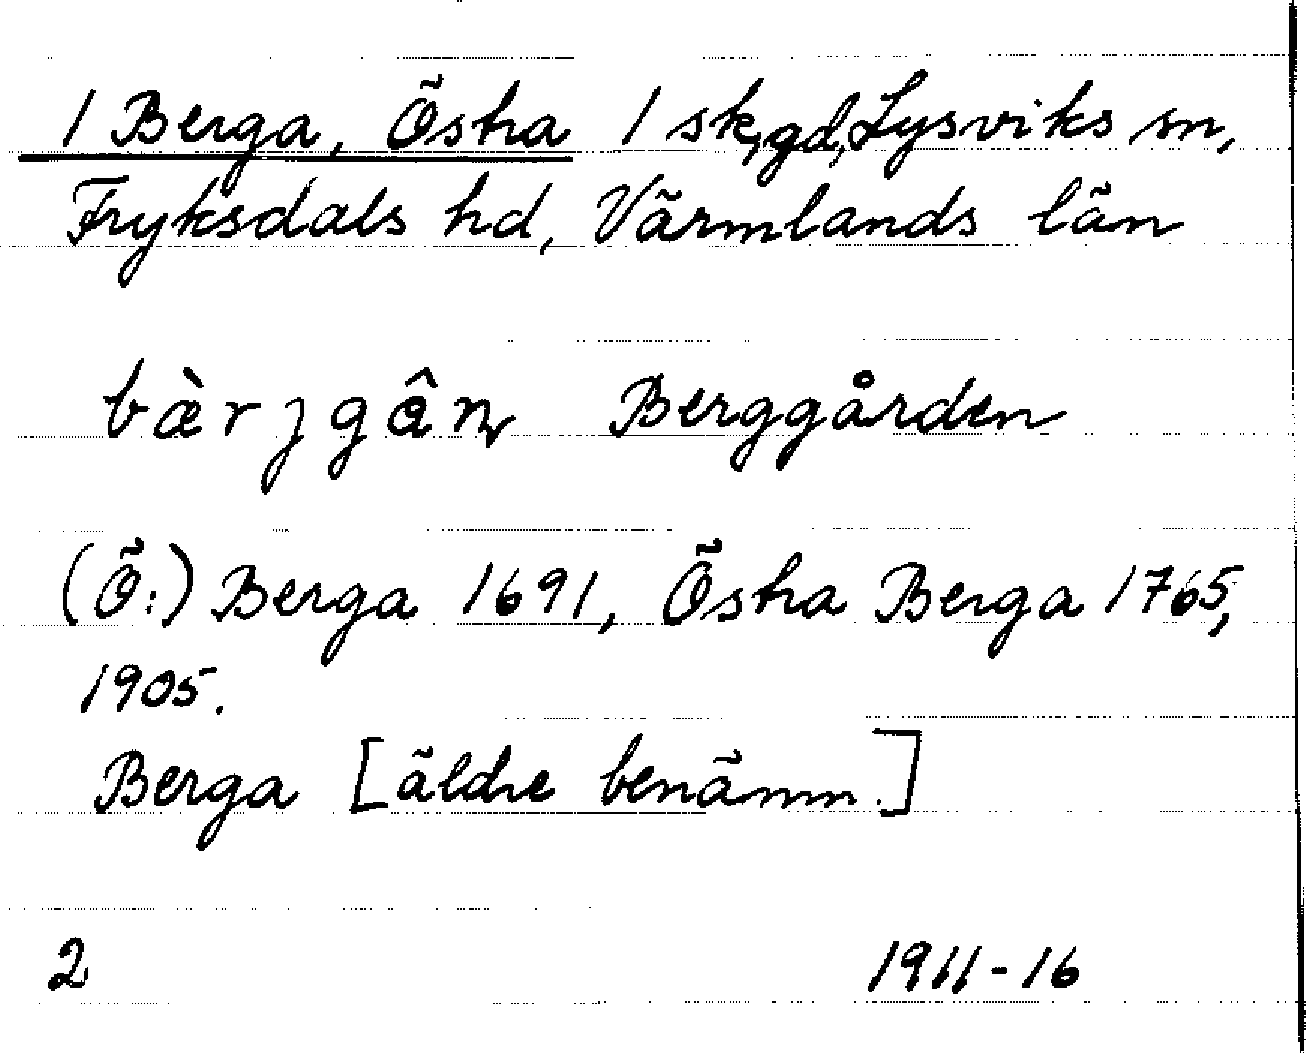 1 Berga, Östra 1 sk, gd, Lysviks sn,
Fryksdals hd, Värmlands län
bæ̀rjgân Berggården
(Ö:) Berga 1691, Östra Berga 1765,
1905.
Berga [äldre benämn.]
2 1911-16